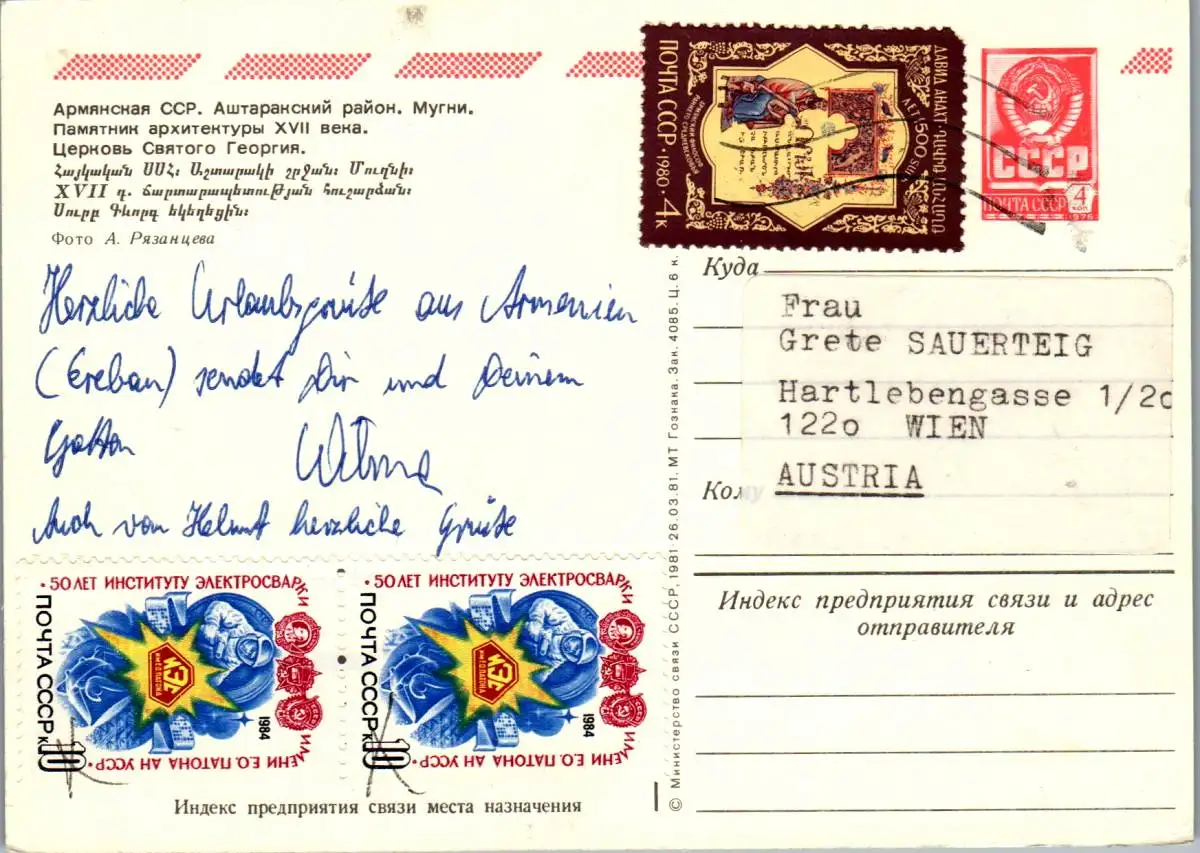 Армянская ССР. Аштаракский район. Мугни.
Памятник архитектуры XVII века.
Церковь Святого Георгия.
Հայկական ՍՍՀ։ Աշտարակի շրջան։ Մուղնի։
XVII դ. ճարտարապետության հուշարձան։
Սուրբ Գևորգ եկեղեցին։
Фото А. Рязанцева
Herzliche Urlaubsgrüße aus Armenien
(Ereban) sendet Dir und Deinem
Gatten Wilma
Auch von Helmut herzliche Grüße
ПОЧТА СССР · 1980 · 4 к
ДАВИД АНАХТ
1500 ЛЕТ
СССР
ПОЧТА СССР 4 коп
1976
Куда
Frau
Grete SAUERTEIG
Hartlebengasse 1/2o
122o WIEN
AUSTRIA
Кому
Индекс предприятия связи и адрес
отправителя
© Министерство связи СССР, 1981 · 26.03.81. МТ Гознака. Зак. 4085. Ц. 6 к.
· 50 ЛЕТ ИНСТИТУТУ ЭЛЕКТРОСВАРКИ
ИМЕНИ Е.О. ПАТОНА АН УССР ·
ПОЧТА СССР к 10
1984
ИЭС
им. Е.О. ПАТОНА
· 50 ЛЕТ ИНСТИТУТУ ЭЛЕКТРОСВАРКИ
ИМЕНИ Е.О. ПАТОНА АН УССР ·
ПОЧТА СССР к 10
1984
ИЭС
им. Е.О. ПАТОНА
Индекс предприятия связи места назначения